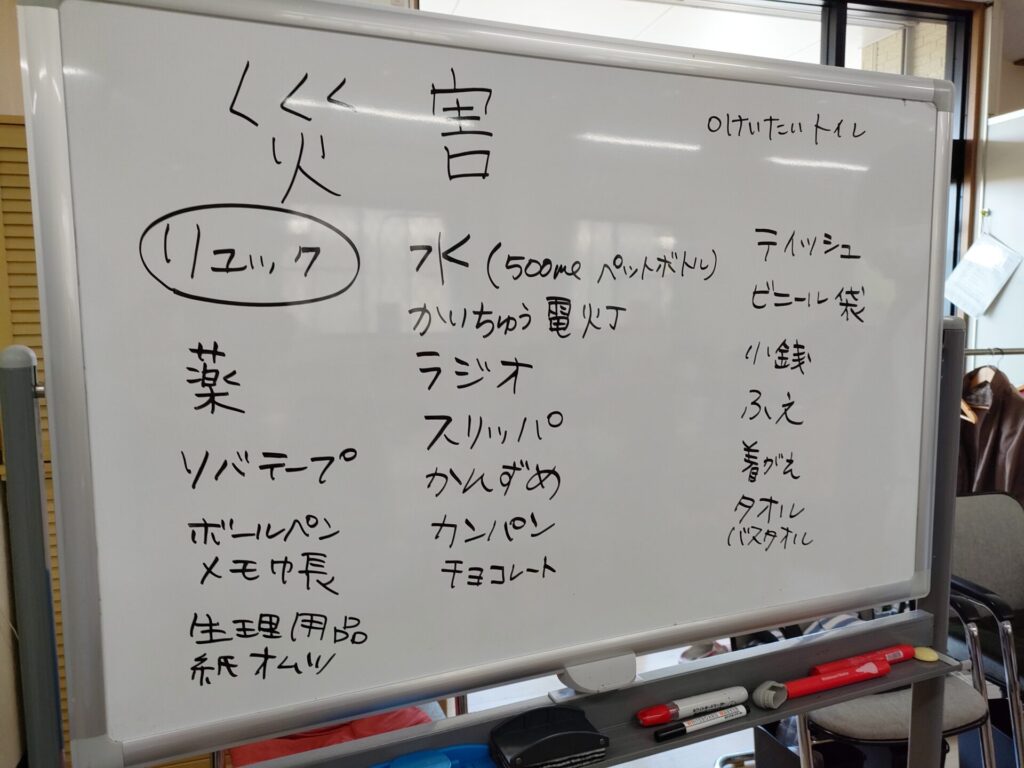 災害
○けいたいトイレ
リュック
薬
ソバテープ
ボールペン
メモ巾長
生理用品
紙オムツ
水(500mlペットボトル)
かいちゅう電灯
ラジオ
スリッパ
かんずめ
カンパン
チョコレート
ティッシュ
ビニール袋
小銭
ふえ
着がえ
タオル
バスタオル